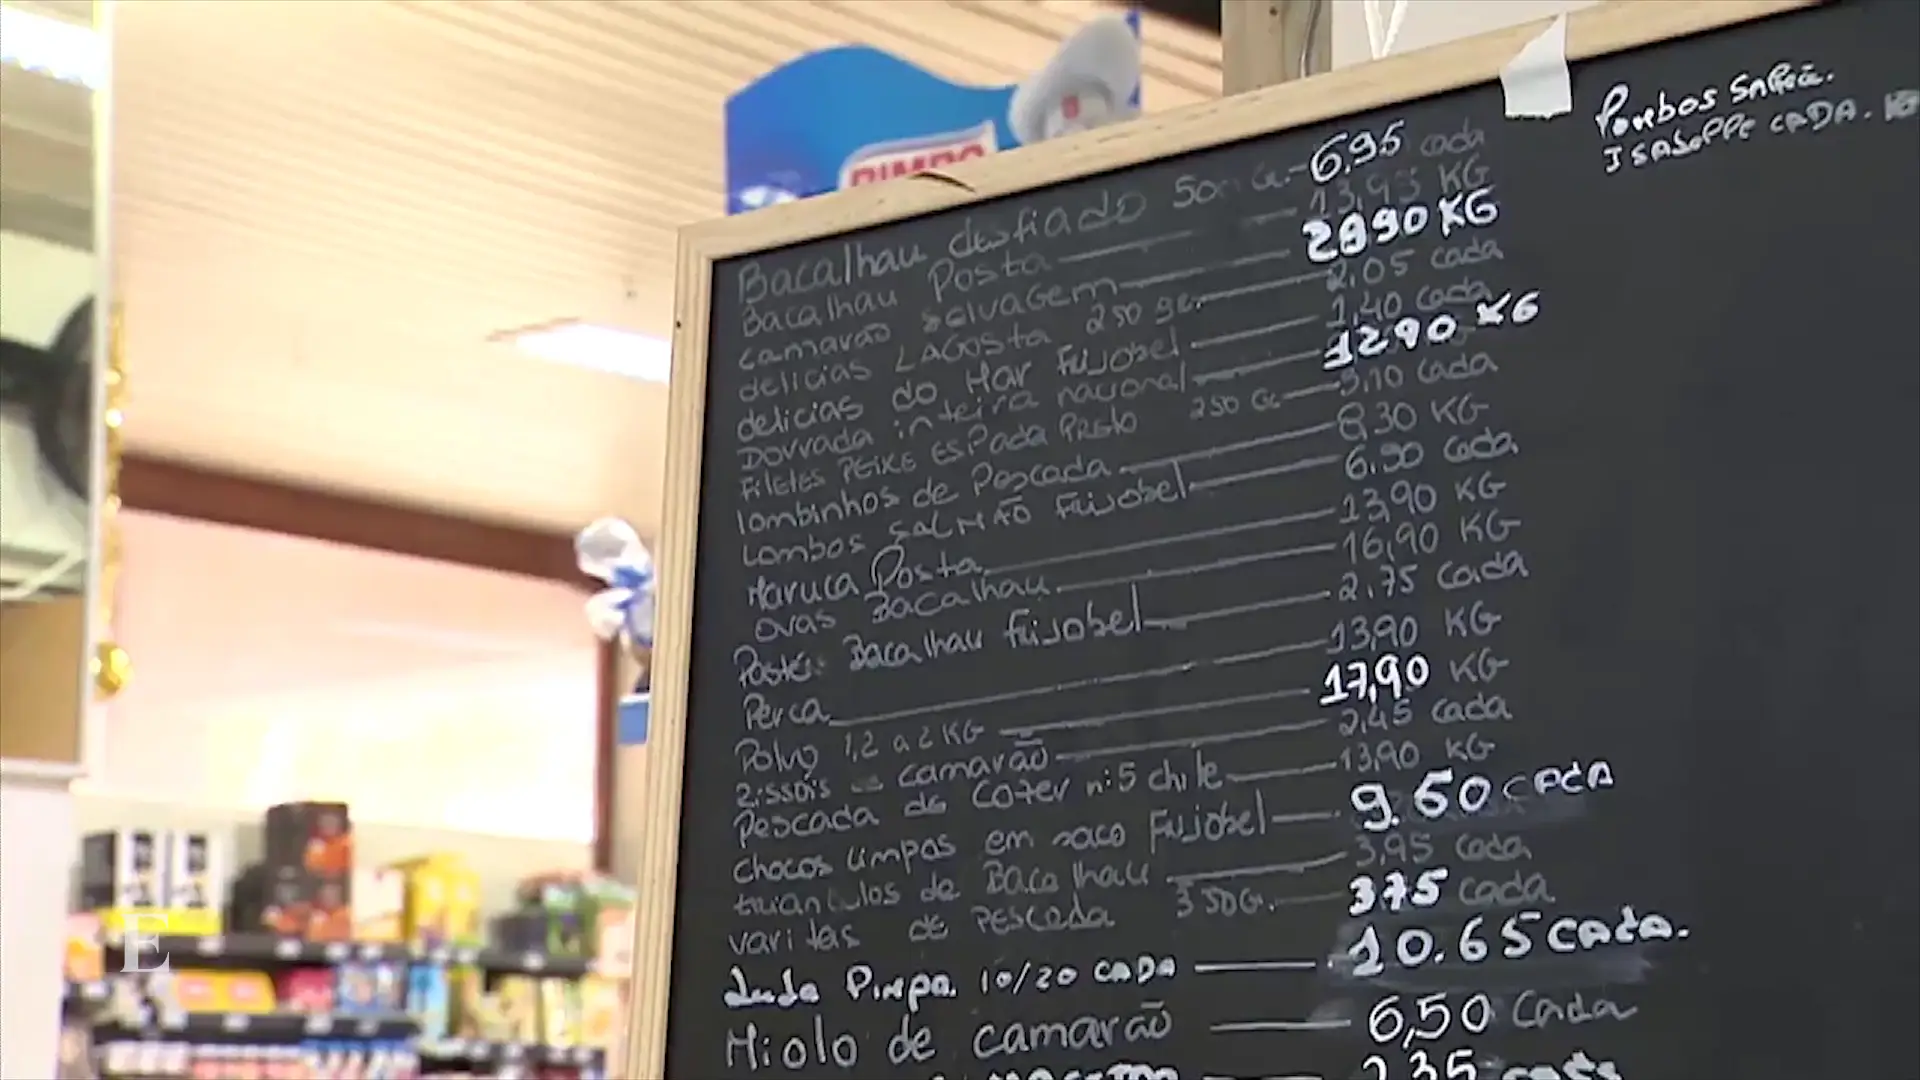 BIMBO
Pombos
ISABELLE CADA.
Bacalhau desfiado 500 G. 6,95 cada
Bacalhau Posta 13,95 KG
camarão selvagem 2990 KG
delicias LAGosta 250 gr. 2,05 cada
delicias do Mar Fuijobel 1,40 cada
Dourada inteira nacional 1290 KG
Filetes PEIXE ESPada PReto 250 G 5,10 cada
lombinhos de Pescada 8,30 KG
Lombos SALMÃO Fuijobel 6,90 cada
Maruca Posta 13,90 KG
ovas Bacalhau 16,90 KG
Pasteis Bacalhau fuijobel 2,75 cada
Perca 13,90 KG
Polvo 1,2 a 2 KG 17,90 KG
Rissois camarão 2,45 cada
Pescada de cozer nº5 chile 13,90 KG
chocos limpos em saco Fuijobel 9.60 CADA
triangulos de Bacalhau 3,95 cada
varitas de PESCada 350G. 3,75 cada
10/20 CADA 10.65 CADA.
Miolo de camarão 6,50 cada
2,35
E